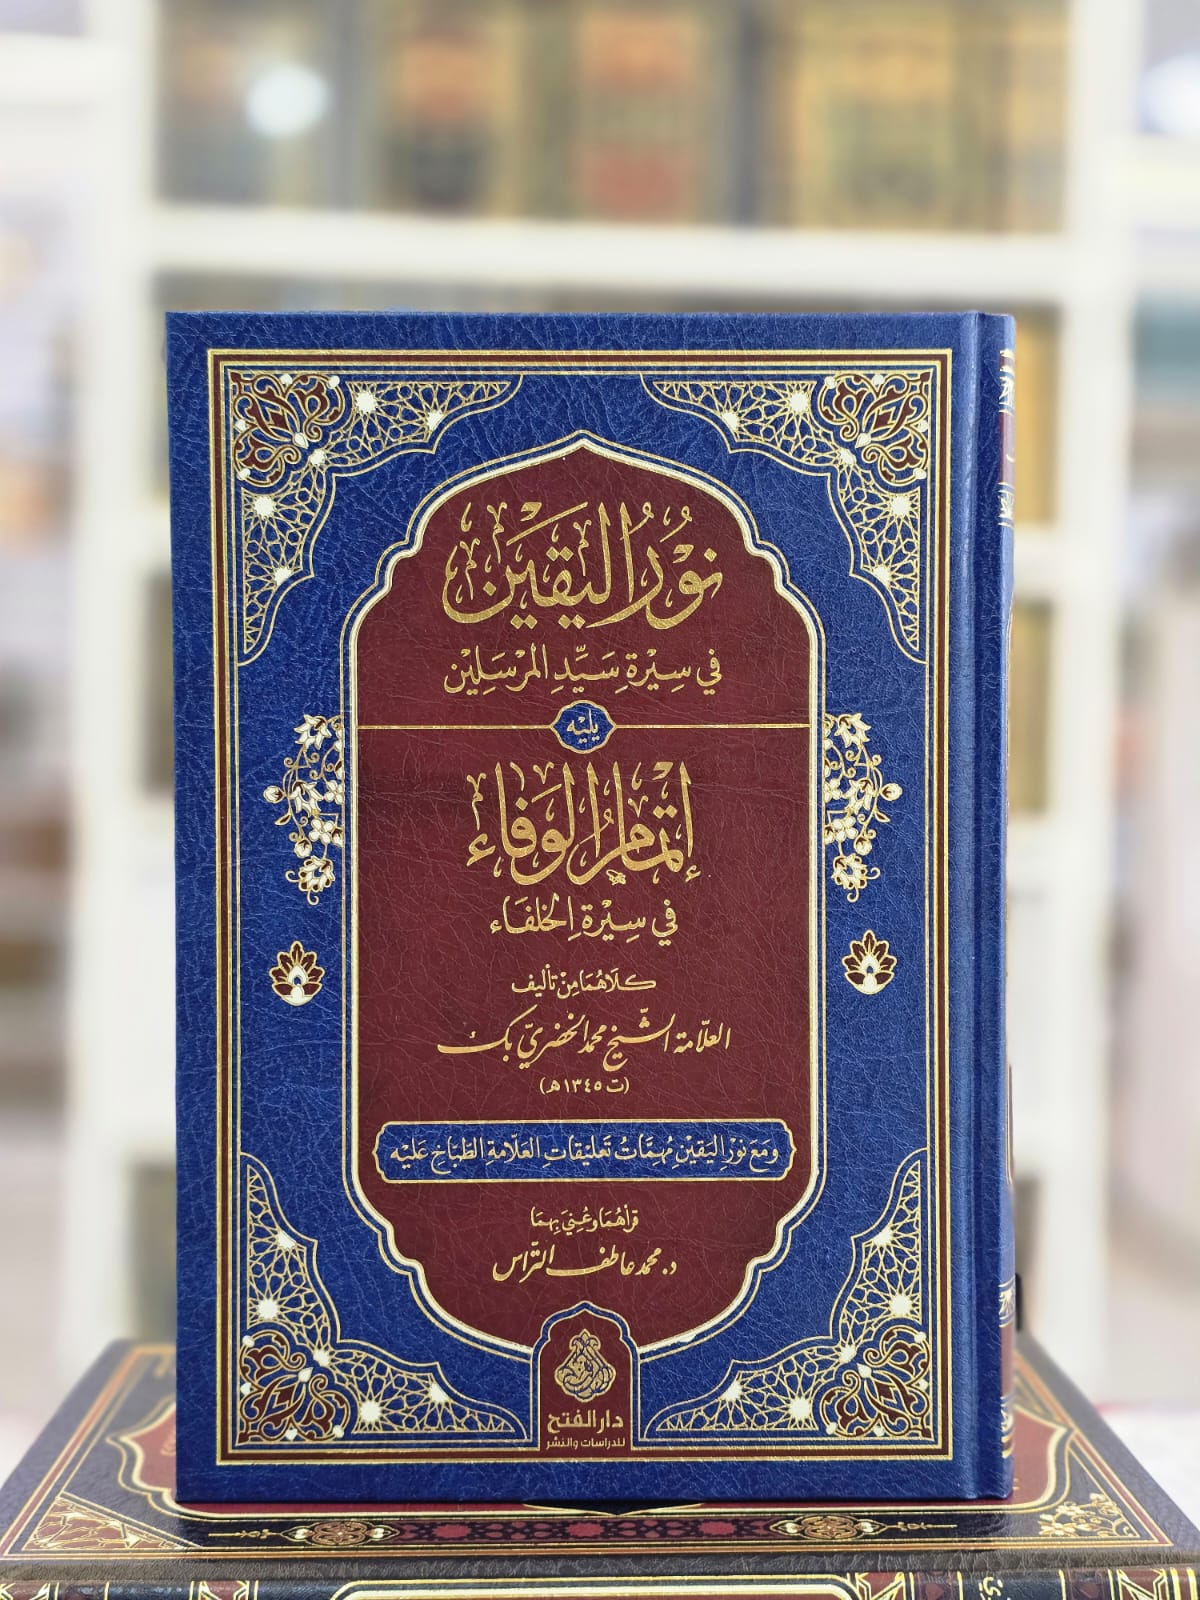 نُورُ اليَقِين
في سِيْرة سَيِّدِ المُرْسَلِيْن
يَليْه
إتمَامُ الوَفَاء
في سِيْرة الخلفَاء
كلَاهُمَا مِنْ تأليف
العلّامة الشّيخ محمد الخضريّ بك
(ت ١٣٤٥ هـ)
وَمَعَ نُوْرِ اليَقِيْنِ مُهِمَّاتُ تَعليْقَاتِ العَلّامَةِ الطّبّاخِ عَليْه
قرأهُمَا وعُنِيَ بِهِمَا
د. محمد عاطف التّراس
دار الفتح
للدراسات والنشر